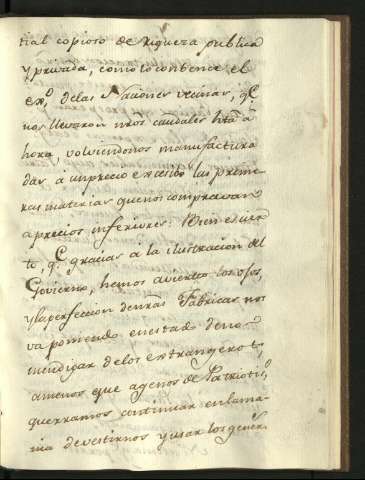 tial copioso de riqueza publica
y privada, como lo convence el
ex.º de las Naciones vecinas, q.e
nos llevaron nros caudales hta a
hora, volviendonos manufactura
das á un precio excesibo las prime
ras materias que nos compravan
a precios inferiores. Bien es cier
to, q.e gracias á la ilustracion del
Govierno, hemos avierto los ojos,
y la perfeccion de nras Fabricas nos
va poniendo en estado de no
mendigar de los extrangeros,
amenos que agenos de Patriotis.º
querramos continuar en la ma-
nia de vestirnos y usar los gener.s